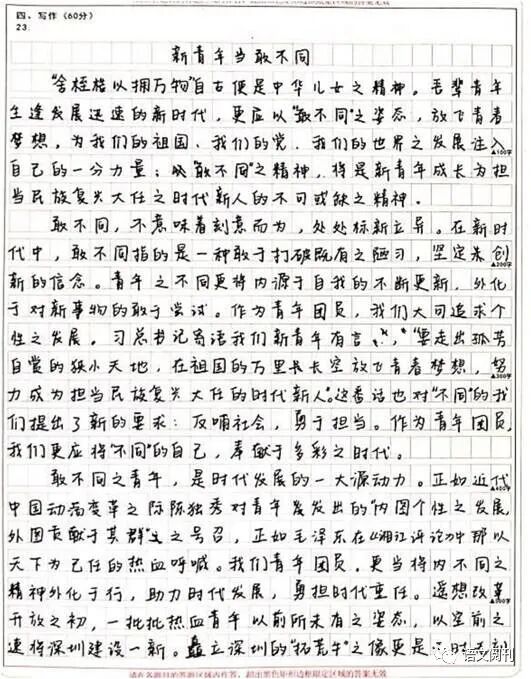 四、写作（60分）
23.
新青年当敢不同
“舍桎梏以拥万物”自古便是中华儿女之精神。吾辈青年
生逢发展迅速的新时代，更应以“敢不同”之姿态，放飞青春
梦想，为我们的祖国、我们的党、我们的世界之发展注入
▲100字
自己的一分力量；以“敢不同”之精神，将是新青年成长为担
当民族复兴大任之时代新人的不可或缺之精神。
敢不同，不意味着刻意而为，处处标新立异。在新时
代中，敢不同指的是一种敢于打破既有之陋习，坚定未创
▲200字
新的信念。青年之不同更将内源于自我的不断更新，外化
于对新事物的敢于尝试。作为青年团员，我们大可追求个
性之发展。习总书记寄语我们新青年有言，“要走出孤芳
自赏的狭小天地，在祖国的万里长空放飞青春梦想，努
▲300字
力成为担当民族复兴大任的时代新人。”这番话也对“不同”的我
们提出了新的要求：反哺社会，勇于担当。作为青年团员，
我们更应将“不同”的自己，奉献于多彩之时代。
敢不同之青年，是时代发展的一大源动力。正如近代
▲400字
中国动荡变革之际陈独秀对青年发出的“内图个性之发展，
外图贡献于其群”之号召，正如毛泽东在《湘江评论》中那以
天下为己任的热血呼喊。我们青年团员，更当将内不同之
精神外化于行，助力时代发展，勇担时代重任。遥想改革
▲500字
开放之初，一批批热血青年以前所未有之姿态，以空前之
速将深圳建设一新。矗立深圳的“拓荒牛”之像更是
请在各题目的答题区域内作答，超出黑色矩形边框限定区域的答案无效
语文阅刊